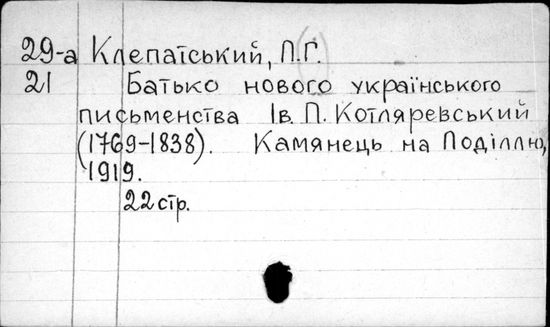 29-а Клепатський, П.Г.
21 Батько нового українського
письменства Ів. П. Котляревський
(1769-1838). Камянець на Поділлю,
1919.
22 стр.